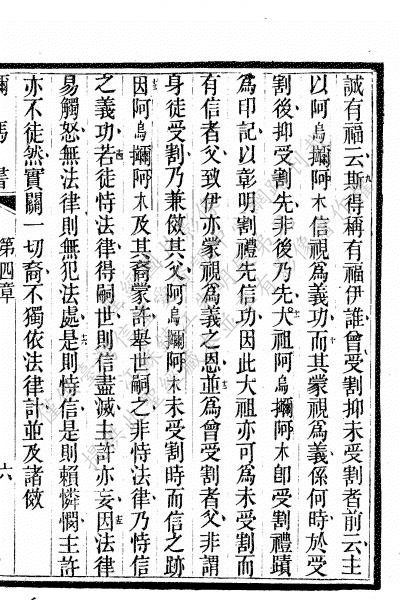 誠有福云斯得稱有福伊誰曾受割抑未受割者前云主
以阿烏擟阿木信視爲義功而其蒙視爲義係何時於受
割後抑受割先非後乃先大祖阿烏擟阿木卽受割禮蹟
爲印記以彰明割禮先信功因此大祖亦可爲未受割而
有信者父致伊亦蒙視爲義之恩並爲曾受割者父非謂
身徒受割乃兼倣其父阿烏擟阿木未受割時而信之跡
因阿烏擟阿木及其裔蒙許舉世嗣之非恃法律乃恃信
之義功若徒恃法律得嗣世則信盡滅主許亦妄因法律
易觸怒無法律則無犯法處是則恃信是則賴憐憫主許
亦不徒然實關一切裔不獨依法律計並及諸倣
爾馬書
第四章
六